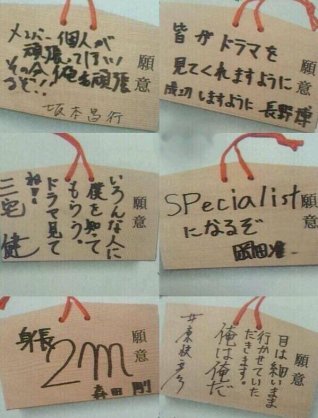 願意
メンバー個人が
頑張って行い
その分俺も頑張
るぞ!!
坂本昌行
願意
皆がドラマを
見てくれますように
成功しますように 長野博
願意
いろんな人に
僕を知って
もらう。
ドラマ見て
ね!!
三宅 健
願意
SPecialist
になるぞ
岡田准一
願意
身長
2m
森田 剛
願意
目は細いまま
行かせていた
だきます。
俺は俺だ
井ノ原快彦